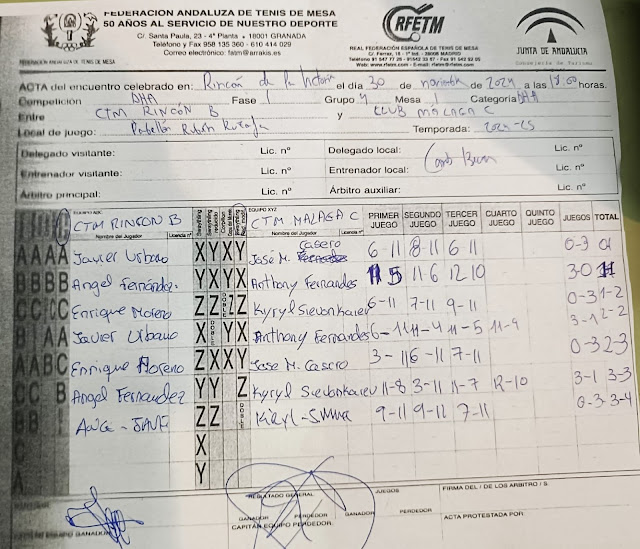 FEDERACIÓN ANDALUZA DE TENIS DE MESA
50 AÑOS AL SERVICIO DE NUESTRO DEPORTE
C/. Santa Paula, 23 - 4ª Planta • 18001 GRANADA
Teléfono y Fax 958 135 360 - 610 414 029
Correo electrónico: fatm@arrakis.es
FEDERACIÓN ANDALUZA DE TENIS DE MESA
RFETM
REAL FEDERACIÓN ESPAÑOLA DE TENIS DE MESA
JUNTA DE ANDALUCIA
ACTA del encuentro celebrado en: Rincón de la Victoria el día 30 de noviembre de 2024 a las 18:00 horas.
Competición DHA Fase 1 Grupo 4 Mesa 1 Categoría DHA
Entre CTM RINCÓN B y CLUB MÁLAGA C
Local de juego: Pabellón Rubén Ruzafa Temporada: 2024-25
Delegado visitante: Lic. nº Delegado local: Lic. nº
Entrenador visitante: Lic. nº Entrenador local: Lic. nº
Árbitro principal: Lic. nº Árbitro auxiliar: Lic. nº
EQUIPO ABC CTM RINCÓN B EQUIPO XYZ CTM MALAGA C PRIMER JUEGO SEGUNDO JUEGO TERCER JUEGO CUARTO JUEGO QUINTO JUEGO JUEGOS TOTAL
Nombre del Jugador Licencia nº Nombre del Jugador Licencia nº
A A A A Javier Urbano X Y X Y José M. Casero 6-11 8-11 6-11 0-3
B B B B Angel Fernández Y X Y X Anthony Fernandes 11-6 12-10 3-0
C C C C Enrique Moreno Z Z DOBLE Z Kyryl Sievonkaiev 6-11 7-11 9-11 0-3 1-2
A A Javier Urbano X DOBLE Y X Anthony Fernandes 6-11 11-4 11-5 11-9 3-1 2-2
A A B C Enrique Moreno Z X X Y Jose M. Casero 3-11 6-11 7-11 0-3 2-3
C C B Angel Fernandez Y Y Z Kyryl Sievonkaiev 11-8 3-11 11-7 12-10 3-1 3-3
B B Z Z DOBLE 9-11 9-11 7-11 0-3 3-4
C X
A Y
RESULTADO GENERAL JUEGOS FIRMA DEL / DE LOS ARBITRO / S
GANADOR PERDEDOR GANADOR PERDEDOR
CAPITÁN EQUIPO PERDEDOR ACTA PROTESTADA POR: